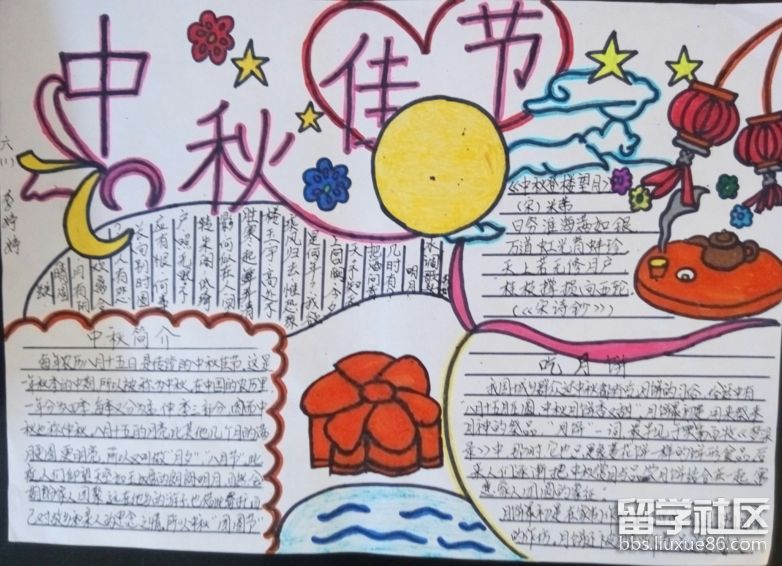 中秋佳节
六(1)
《中秋登楼望月》
(宋)米芾
目穷淮海满如银
万道虹光育蚌珍
天上若无修月户
桂枝撑损向西轮
(《宋诗钞》)
水调歌头
明月
几时有
把酒问青
天不知
天上宫阙今夕
是何年我欲
乘风归去惟恐琼
楼玉宇高处不
胜寒起舞弄清
影何似在人间
转朱阁低绮
户照无眠不
应有恨何事
长向别时圆
人有悲
欢离合
月有阴
中秋简介
每年农历八月十五日是传统的中秋佳节,这是
一年秋季的中期,所以被称为中秋。在中国的农历里,
一年分为四季,每季又分为孟、仲、季三部分,因而中
秋也称仲秋。八月十五的月亮比其他几个月的满
月更圆,更明亮,所以又叫做“月夕”“八月节”。此
夜,人们仰望天空如玉如盘的朗朗明月,自然会
期盼家人团聚。远在他乡的游子,也借此寄托自
己对故乡和亲人的思念之情。所以,中秋又“团圆节”
吃月饼
我国城乡群众过中秋都有吃月饼的习俗,
八月十五月正圆,中秋月饼香又甜
月神的祭品,“月饼”一词,
中,那时,它也只是像菱花饼一样的饼形食品。后
来人们逐渐把中秋赏月与品尝月饼结合在一起,寓
意家人团圆的象征
留学社区
bbs.liuxue86.com